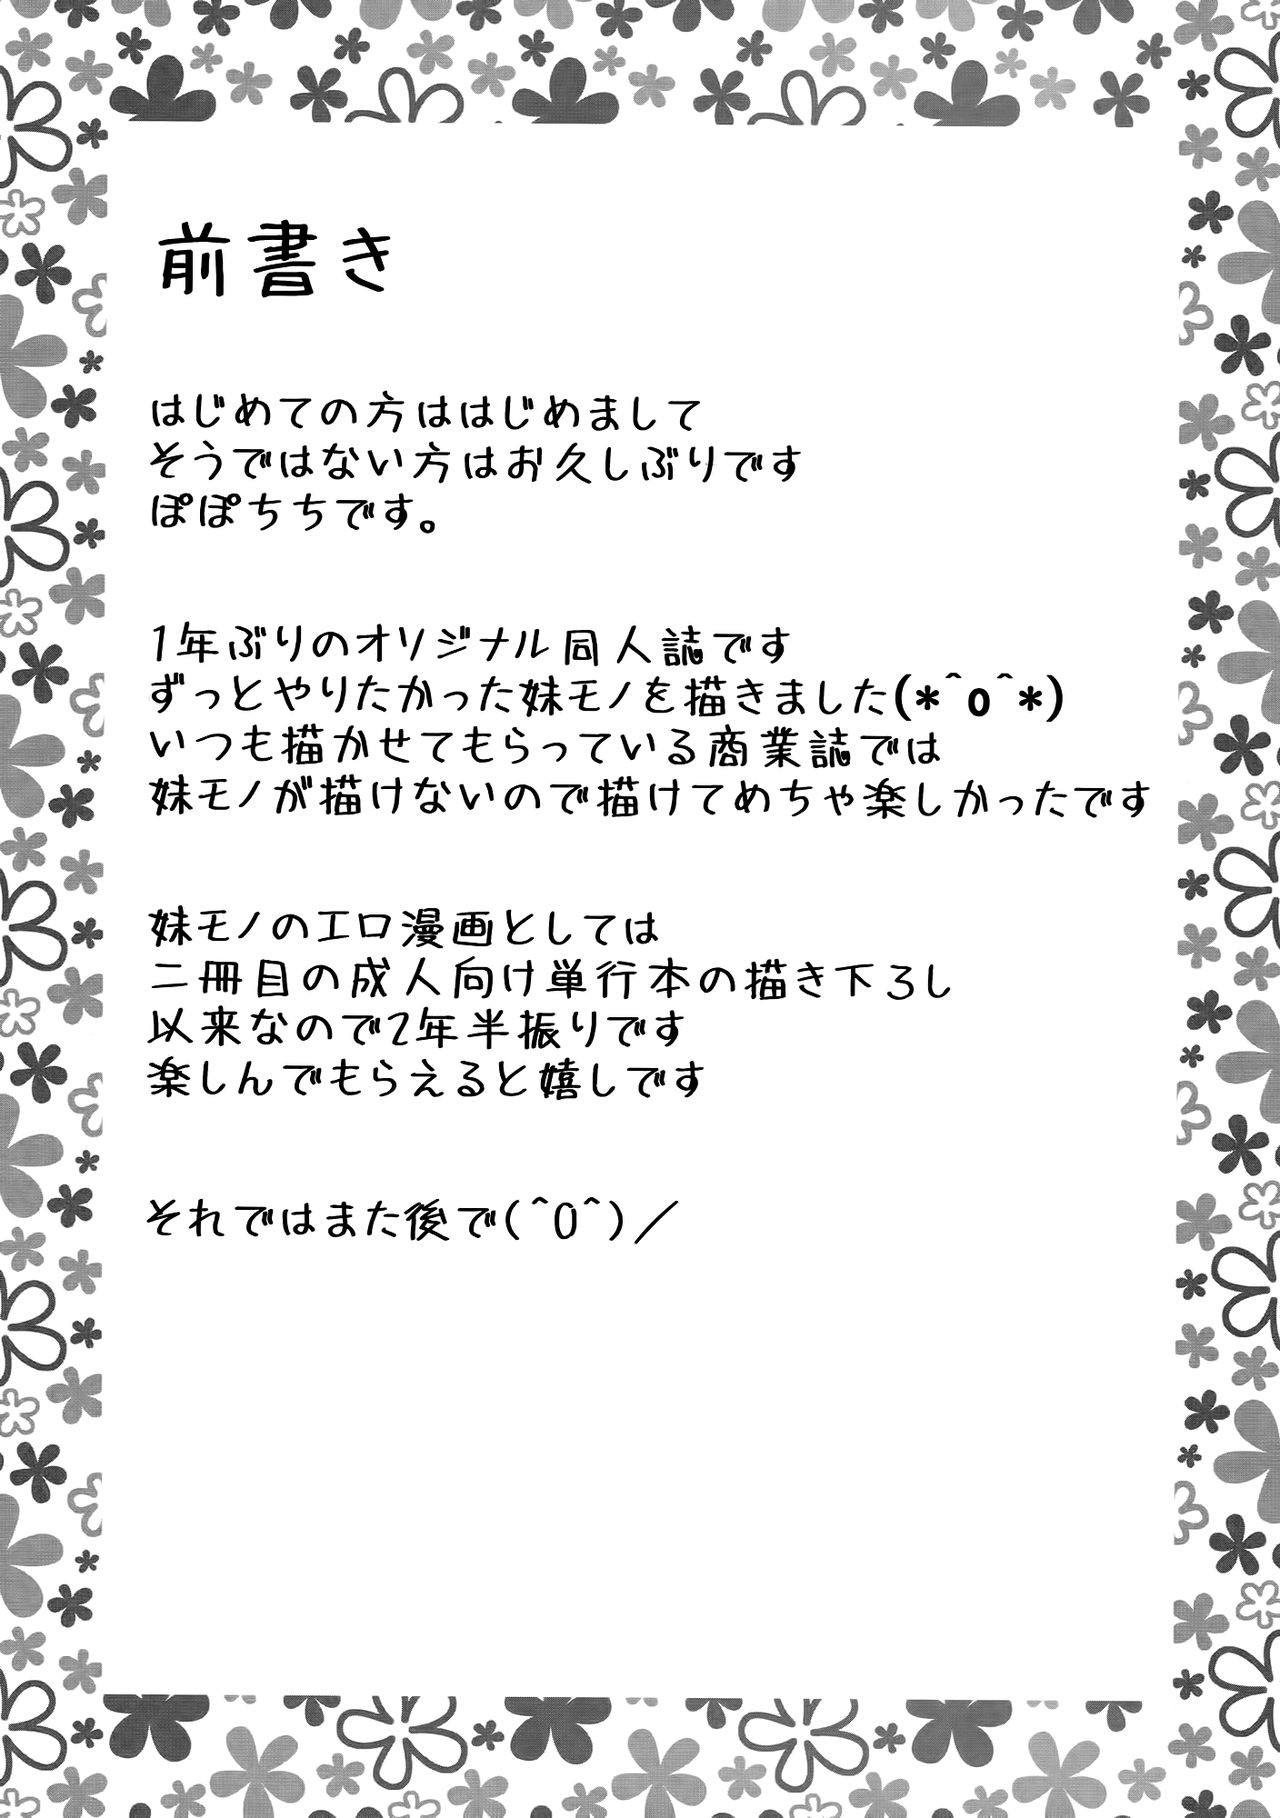 前書き
はじめての方ははじめまして
そうではない方はお久しぶりです
ぽぽちちです。
1年ぶりのオリジナル同人誌です
ずっとやりたかった妹モノを描きました(*^o^*)
いつも描かせてもらっている商業誌では
妹モノが描けないので描けてめちゃ楽しかったです
妹モノのエロ漫画としては
二冊目の成人向け単行本の描き下ろし
以来なので2年半振りです
楽しんでもらえると嬉しです
それではまた後で(^0^)／